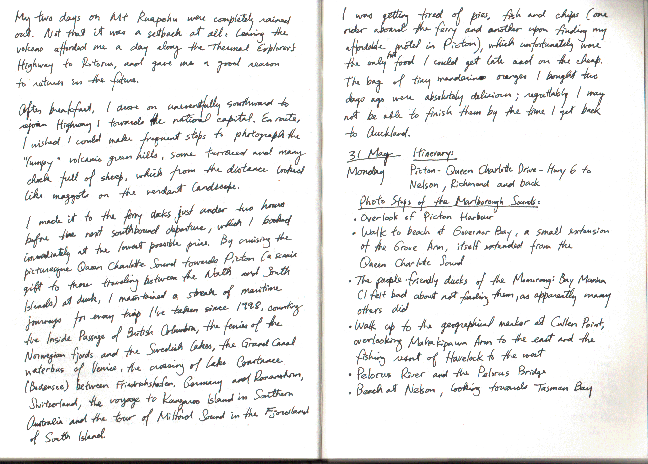 My two days on Mt Ruapehu were completely rained
out. Not that it was a setback at all: leaving the
volcano afforded me a day along the Thermal Explorer's
Highway to Rotorua, and gave me a good reason
to return in the future.
After breakfast, I drove on uneventfully southward to
rejoin Highway 1 towards the national capital. En route,
I wished I could make frequent stops to photograph the
"lumpy" volcanic green hills, some terraced and many
chock full of sheep, which from the distance looked
like maggots on the verdant landscape.
I made it to the ferry docks just under two hours
before the next southbound departure, which I booked
immediately at the lowest possible price. By cruising the
picturesque Queen Charlotte Sound towards Picton (a scenic
gift to those traveling between the North and South
Islands) at dusk, I maintained a streak of maritime
journeys for every trip I've taken since 1998, counting
the Inside Passage of British Columbia, the ferries of the
Norwegian fjords and the Swedish lakes, the Grand Canal
waterbus of Venice, the crossing of Lake Constance
(Bodensee) between Friedrichshafen, Germany and Romanshorn,
Switzerland, the voyage to Kangaroo Island in Southern
Australia and the tour of Milford Sound in the Fjordland
of South Island.
I was getting tired of pies, fish and chips (one
order aboard the ferry and another upon finding my
affordable motel in Picton), which unfortunately were
the only hot food I could get late and on the cheap.
The bag of tiny mandarin oranges I bought two
days ago were absolutely delicious; regrettably I may
not be able to finish them by the time I get back
to Auckland.
31 May Itinerary:
Monday Picton - Queen Charlotte Drive - Hwy 6 to
Nelson, Richmond and back
Photo Stops of the Marlborough Sounds:
• Overlook of Picton Harbour
• Walk to beach at Governor Bay, a small extension
of the Grove Arm, itself extended from the
Queen Charlotte Sound
• The people-friendly ducks of the Momorangi Bay Marina
(I felt bad about not feeding them, as apparently many
others did
• Walk up to the geographical marker at Cullen Point,
overlooking Mahakipawa Arm to the east and the
fishing resort of Havelock to the west
• Pelorus River and the Pelorus Bridge
• Beach at Nelson, looking towards Tasman Bay